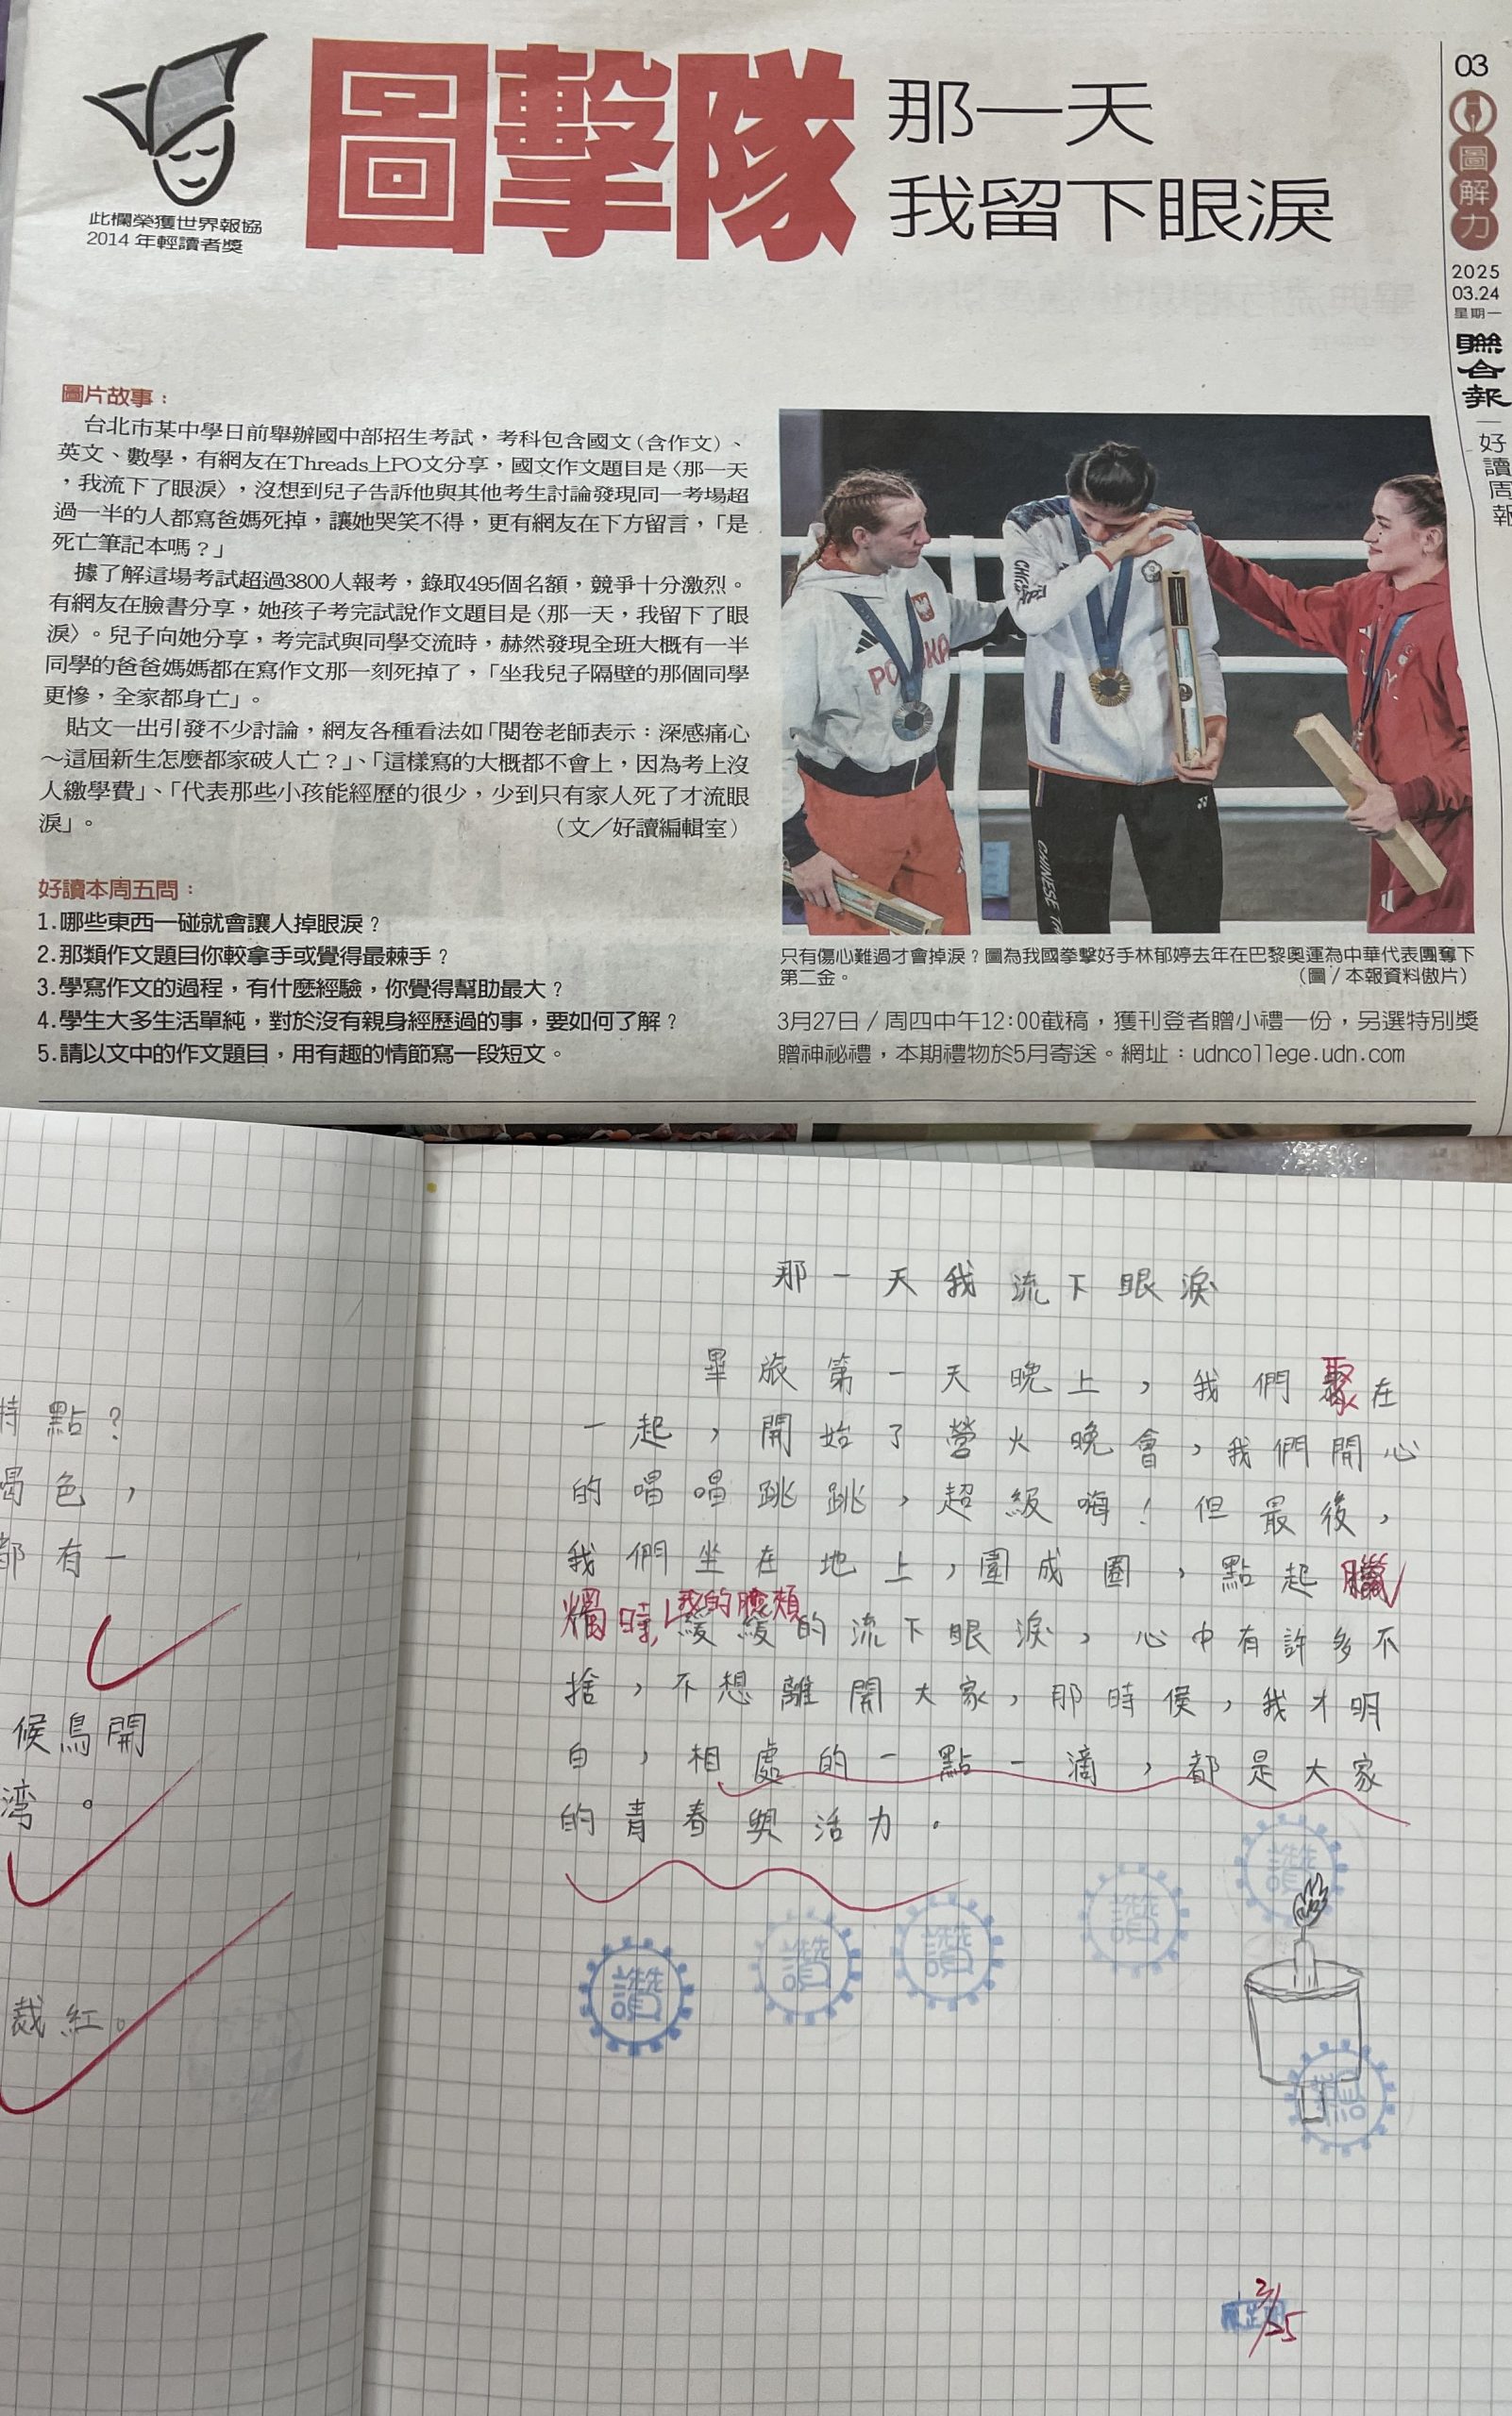 此欄榮獲世界報協
2014年輕讀者獎
圖擊隊
那一天
我留下眼淚
03
圖解力
2025
03.24
星期一
聯合報
好讀周報
圖片故事：
台北市某中學日前舉辦國中部招生考試，考科包含國文(含作文)、
英文、數學，有網友在Threads上PO文分享，國文作文題目是〈那一天
，我流下了眼淚〉，沒想到兒子告訴他與其他考生討論發現同一考場超
過一半的人都寫爸媽死掉，讓她哭笑不得，更有網友在下方留言，「是
死亡筆記本嗎？」
據了解這場考試超過3800人報考，錄取495個名額，競爭十分激烈。
有網友在臉書分享，她孩子考完試說作文題目是〈那一天，我留下了眼
淚〉。兒子向她分享，考完試與同學交流時，赫然發現全班大概有一半
同學的爸爸媽媽都在寫作文那一刻死掉了，「坐我兒子隔壁的那個同學
更慘，全家都身亡」。
貼文一出引發不少討論，網友各種看法如「閱卷老師表示：深感痛心
～這屆新生怎麼都家破人亡？」、「這樣寫的大概都不會上，因為考上沒
人繳學費」、「代表那些小孩能經歷的很少，少到只有家人死了才流眼
淚」。
（文／好讀編輯室）
好讀本周五問：
1.哪些東西一碰就會讓人掉眼淚？
2.那類作文題目你較拿手或覺得最棘手？
3.學寫作文的過程，有什麼經驗，你覺得幫助最大？
4.學生大多生活單純，對於沒有親身經歷過的事，要如何了解？
5.請以文中的作文題目，用有趣的情節寫一段短文。
POLSKA
CHINESE TA
只有傷心難過才會掉淚？圖為我國拳擊好手林郁婷去年在巴黎奧運為中華代表團奪下
第二金。
（圖／本報資料傲片）
3月27日／周四中午12:00截稿，獲刊登者贈小禮一份，另選特別獎
贈神祕禮，本期禮物於5月寄送。網址：udncollege.udn.com
那一天我流下眼淚
畢旅第一天晚上，我們聚在
一起，開始了營火晚會，我們開心
的唱唱跳跳，超級嗨！但最後，
我們坐在地上，圍成圈，點起臘
燭時，我的臉頰緩緩的流下眼淚，心中有許多不
捨，不想離開大家，那時侯，我才明
白，相處的一點一滴，都是大家
的青春與活力。
特點？
褐色，
都有一
候鳥開
灣。
裁紅。
讚
讚
讚
讚
讚
讚